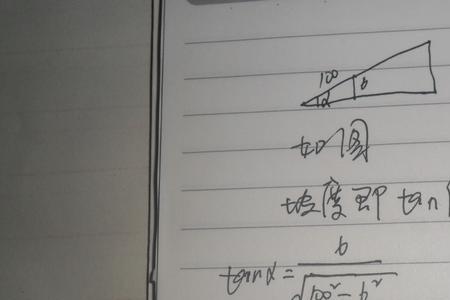 100 b
α
如图
坡度即 tan
tanα = b / √(100² - b²)